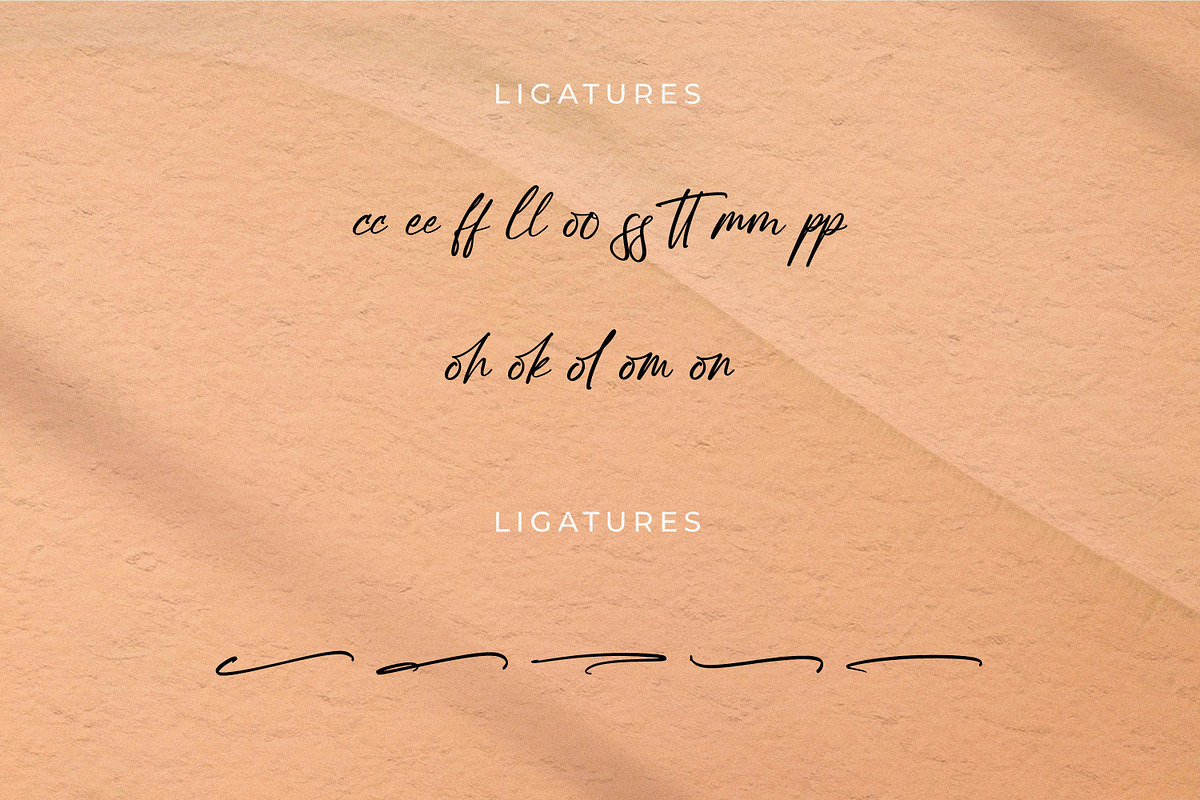 LIGATURES
cc ee ff ll oo ss tt mm pp
oh ok ol om on
LIGATURES